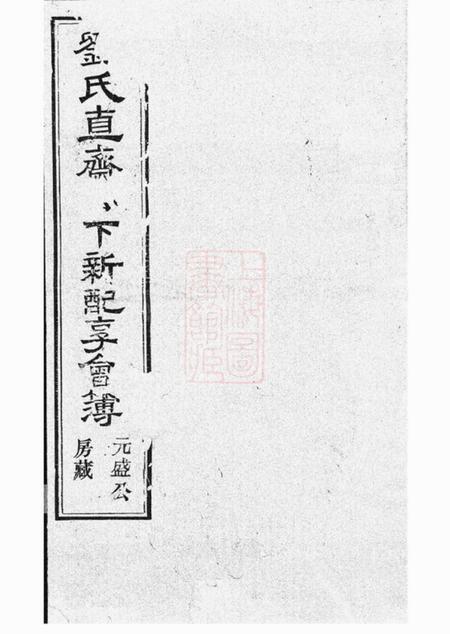 劉氏直齋公下新配享會簿
元盛公
房藏
上海圖
書館藏